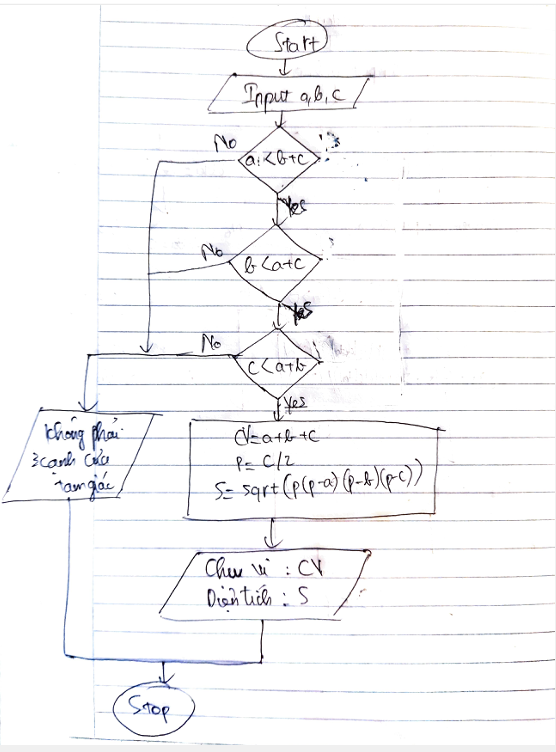 Start
Input a, b, c
No
a < b+c
Yes
No
b < a+c
Yes
No
c < a+b
Yes
không phải
3 cạnh của
tam giác
CV = a+b+c
P = C/2
S = sqrt(p(p-a)(p-b)(p-c))
Chu vi : CV
Diện tích : S
Stop